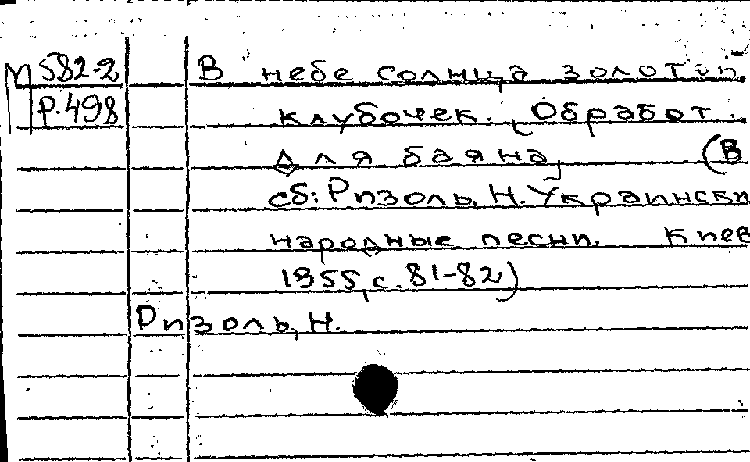 М 582-2
Р.498
В небе солнца золотой
клубочек. [Обработ.
для баяна]
(В
сб: Ризоль, Н. Украински
народные песни. Киев
1955, с. 81-82)
Ризоль, Н.